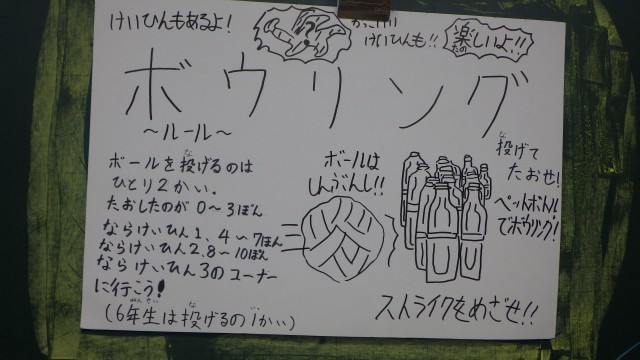 けいひんもあるよ!
かっこいい
けいひんも!!
楽しいよ!!
たの
ボウリング
～ルール～
な
ボールを投げるのは
ひとり2かい。
たおしたのが 0～3ぼん
ならけいひん1、4～7ほん
ならけいひん2、8～10ぽん
ならけいひん3のコーナー
に行こう!
ねんせい な いっ
(6年生は投げるの1かい)
ボールは
しんぶんし!!
な
投げて
たおせ!
ペットボトル
でボウリング!
ストライクをめざせ!!